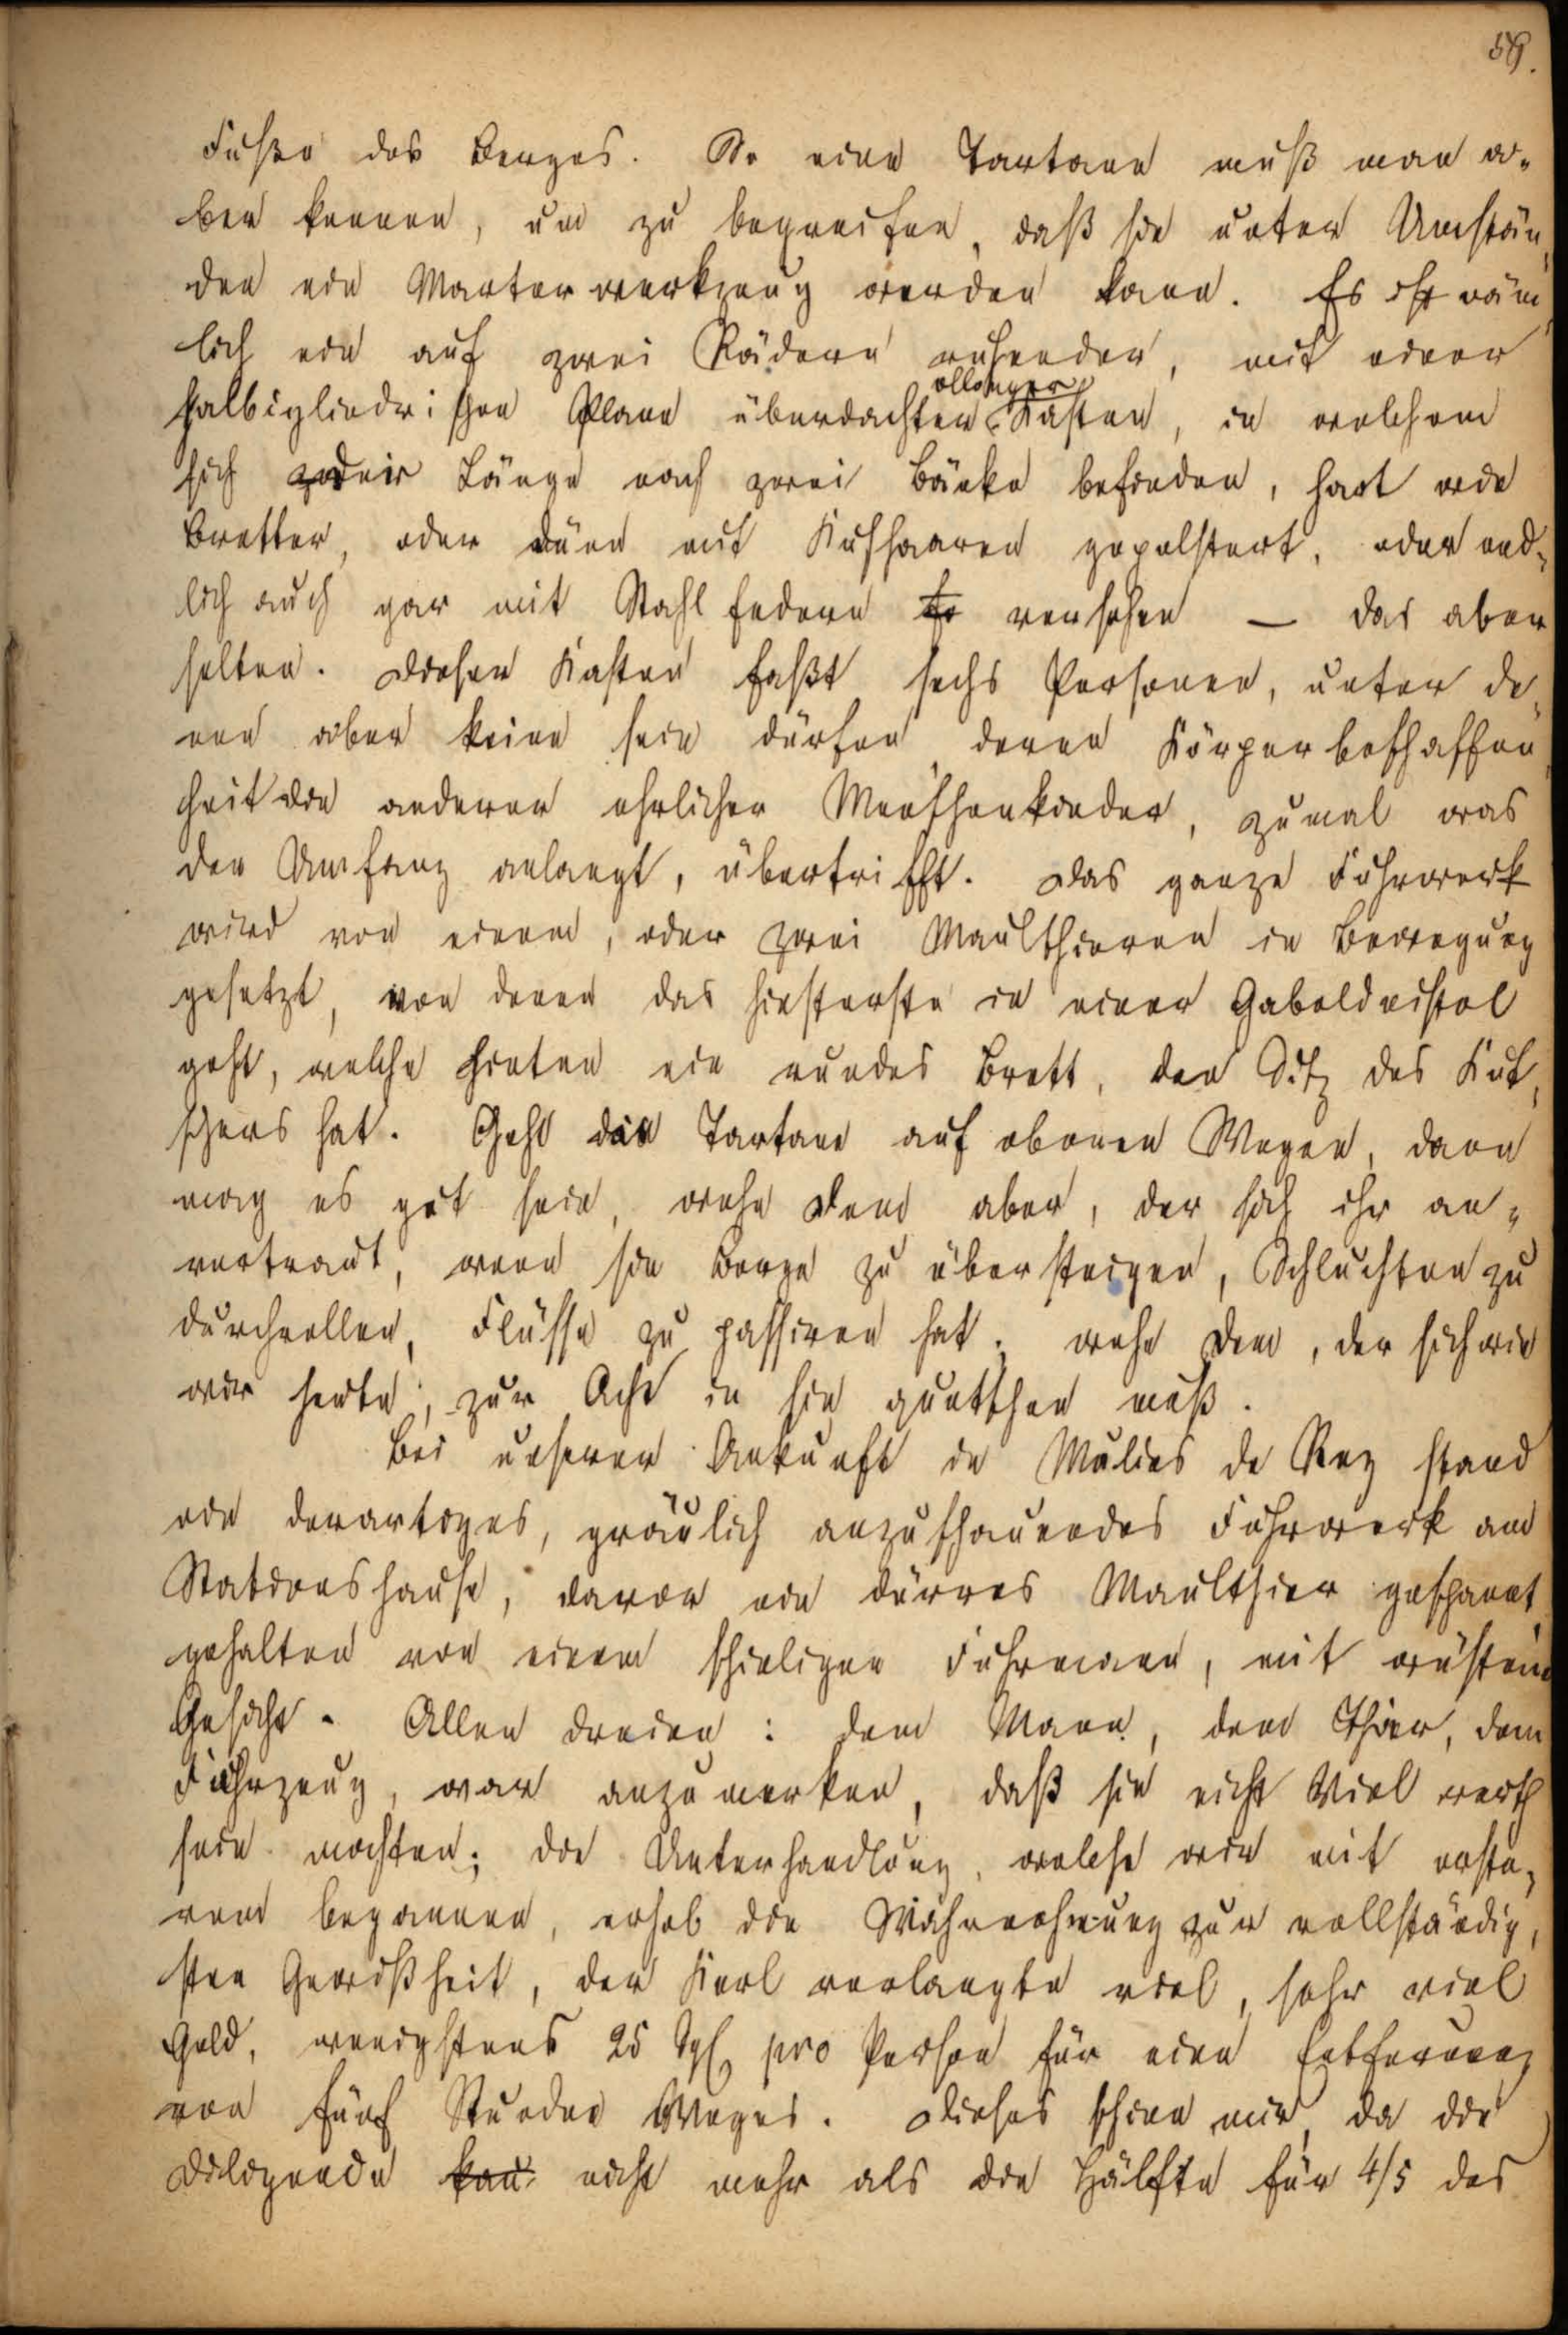 59.
Fuße des Berges. So eine Tartane muß man a-
ber kennen, um zu begreifen, daß sie unter Umstän-
den ein Marterwerkzeug werden kann. Es ist näm-
lich ein auf zwei Rädern ruhender, mit einer
halbcylindrischen Plane überdachter Kasten, in welchem
sich der Länge nach zwei Bänke befinden, hart wie
Bretter, oder dünn mit Kuhhaaren gepolstert, oder end-
lich auch gar mit Stahlfedern versehen — das aber
selten. Dieser Kasten faßt sechs Personen, unter de-
nen aber keine sein dürfen, deren Körperbeschaffen-
heit die anderer ehrlicher Menschenkinder, zumal was
den Umfang anlangt, übertrifft. Das ganze Fuhrwerk
wird von einem, oder zwei Maulthieren in Bewegung
gesetzt, von denen das hinterste in einer Gabeldeichsel
geht, welche hinten ein rundes Brett, den Sitz des Kut-
schers hat. Geht die Tartane auf ebenen Wegen, dann
mag es gut sein, wehe Dem aber, der sich ihr an-
vertraut, wenn sie Berge zu übersteigen, Schluchten zu
durchrollen, Flüsse zu passiren hat. wehe Dem, der sich wie
wir heute, zur Acht in sie quetschen muß.
Bei unserer Ankunft in Mulins de Rey stand
ein derartiges, gräulich anzuschauendes Fuhrwerk am
Stationshause, davor ein dürres Maulthier gespannt,
gehalten von einem schieligen Fuhrmann, mit wüstem
Gesicht. Allen dreien: dem Mann, dem Thier, dem
Fuhrzeug, war anzumerken, daß sie nicht Viel werth
sein mochten; die Unterhandlung, welche wir mit erste-
rem begannen, erhob die Wahrnehmung zur vollständig-
sten Gewißheit, der Kerl verlangte viel, sehr viel
Geld, wenigstens 25 Sgl. pro Person für eine Entfernung
von fünf Stunden Weges. Dieses schien mir, da die
Diligencia nicht mehr als die Hälfte für 4/5 des